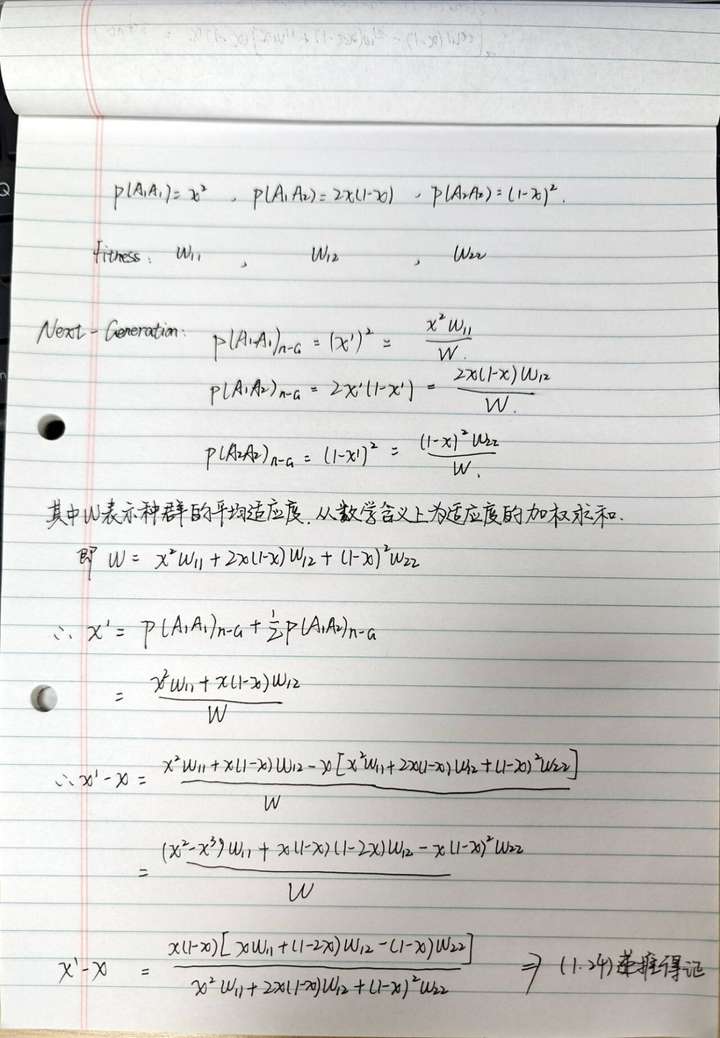 p(A₁A₁)=x² , p(A₁A₂)=2x(1-x) , p(A₂A₂)=(1-x)².
Fitness: W₁₁ , W₁₂ , W₂₂
Next-Generation: p(A₁A₁)n-G = (x')² = x²W₁₁/W.
p(A₁A₂)n-G = 2x'(1-x') = 2x(1-x)W₁₂/W.
p(A₂A₂)n-G = (1-x')² = (1-x)²W₂₂/W.
其中W表示种群的平均适应度.从数学含义上为适应度的加权求和.
即 W = x²W₁₁+2x(1-x)W₁₂+(1-x)²W₂₂
∴ x' = p(A₁A₁)n-G + ½p(A₁A₂)n-G
= x²W₁₁+x(1-x)W₁₂/W
∴ x'-x = x²W₁₁+x(1-x)W₁₂-x[x²W₁₁+2x(1-x)W₁₂+(1-x)²W₂₂]/W
= (x²-x³)W₁₁+x(1-x)(1-2x)W₁₂-x(1-x)²W₂₂/W
x'-x = x(1-x)[xW₁₁+(1-2x)W₁₂-(1-x)W₂₂]/x²W₁₁+2x(1-x)W₁₂+(1-x)²W₂₂ ⇒ (1.24)递推得证